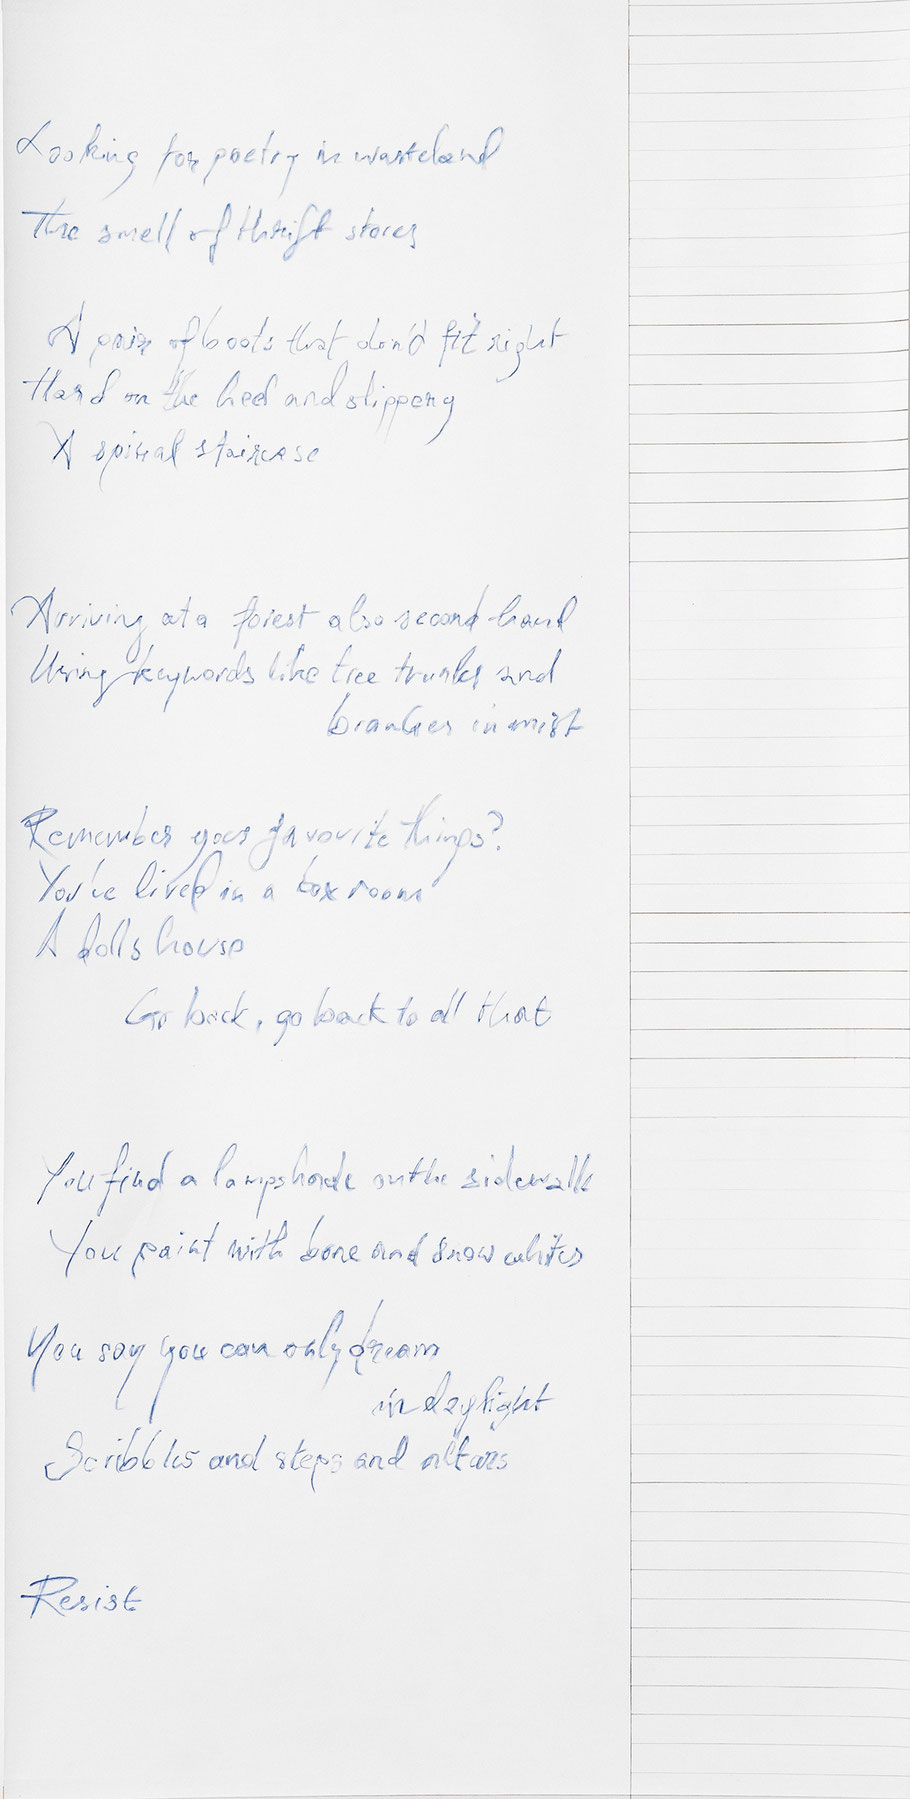 Looking for poetry in wasteland
The smell of thrift stores
A pair of boots that don't fit right
Hard on the heel and slippery
A spiral staircase
Arriving at a forest also second-hand
Using keywords like tree trunks and
branches in mist
Remember your favourite things?
You've lived in a box room
A dolls house
Go back, go back to all that
You find a lampshade on the sidewalk
You paint with bone and snow whites
You say you can only dream
in daylight
Scribbles and steps and altars
Resist